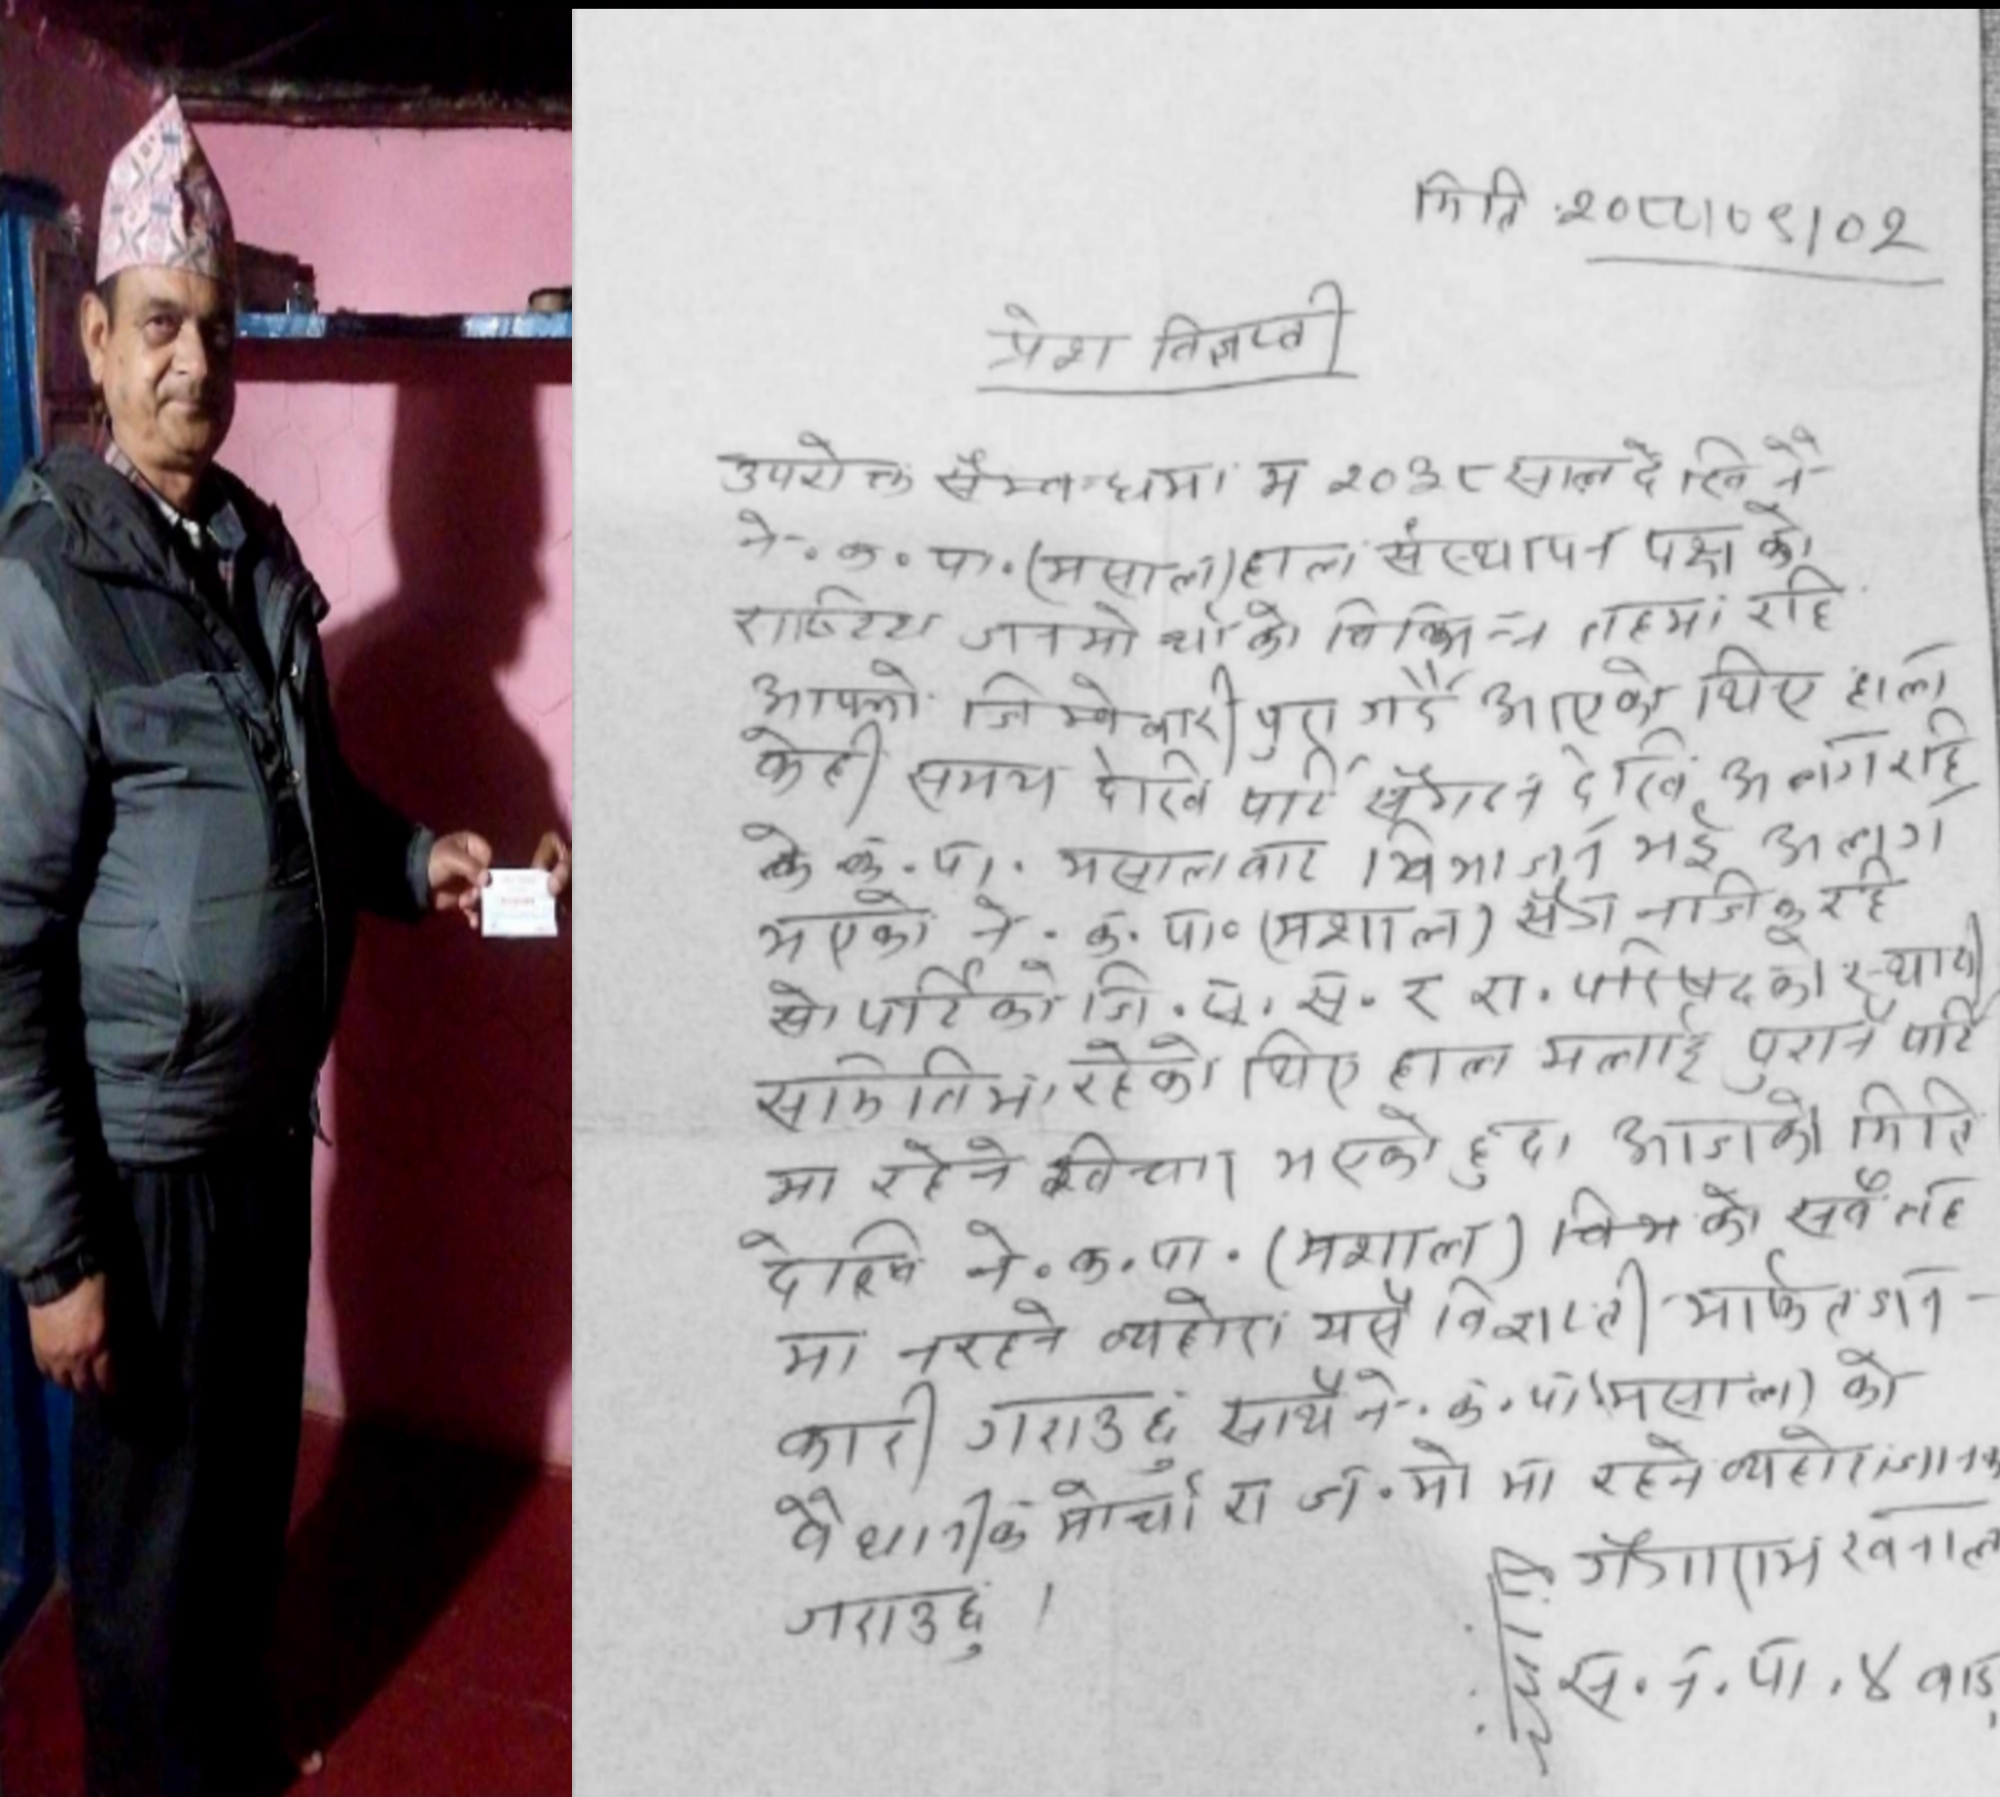 मिति २०८०।०९।०२
प्रेश विज्ञप्ती
उपरोक्त सम्वन्धमा म २०३८ सालदेखि नै
ने.क.पा.(मसाल)हाल संस्थापन पक्ष को
राष्टिय जनमोर्चाको विभिन्न तहमा रहि
आफ्नो जिम्मेवारी पुरा गर्दै आएको थिए हाल
केही समय देखि पार्टि सँगठन देखि अलग रहि
के.क.पा. मसालवाट विभाजन भई अलग
भएको ने.क.पा.(मशाल) सँग नजिक रहि
सो पार्टिको जि.स.स. र रा. परिषदको स्थायी
समितिमा रहेको थिए हाल मलाई पुरानै पार्टि
मा रहेने विचार भएको हुदा आजको मिति
देखि ने.क.पा.(मशाल) को सवै तह
मा नरहने व्यहोरा यसै विज्ञप्ती मार्फत जान-
कारी गराउछु साथै ने.क.पा(मसाल) को
वैधानीक मोर्चा रा.ज.मो मा रहने व्यहोरा जानका
गराउछु ।
गँगाराम खनाल
स.न.पा.४ वाड